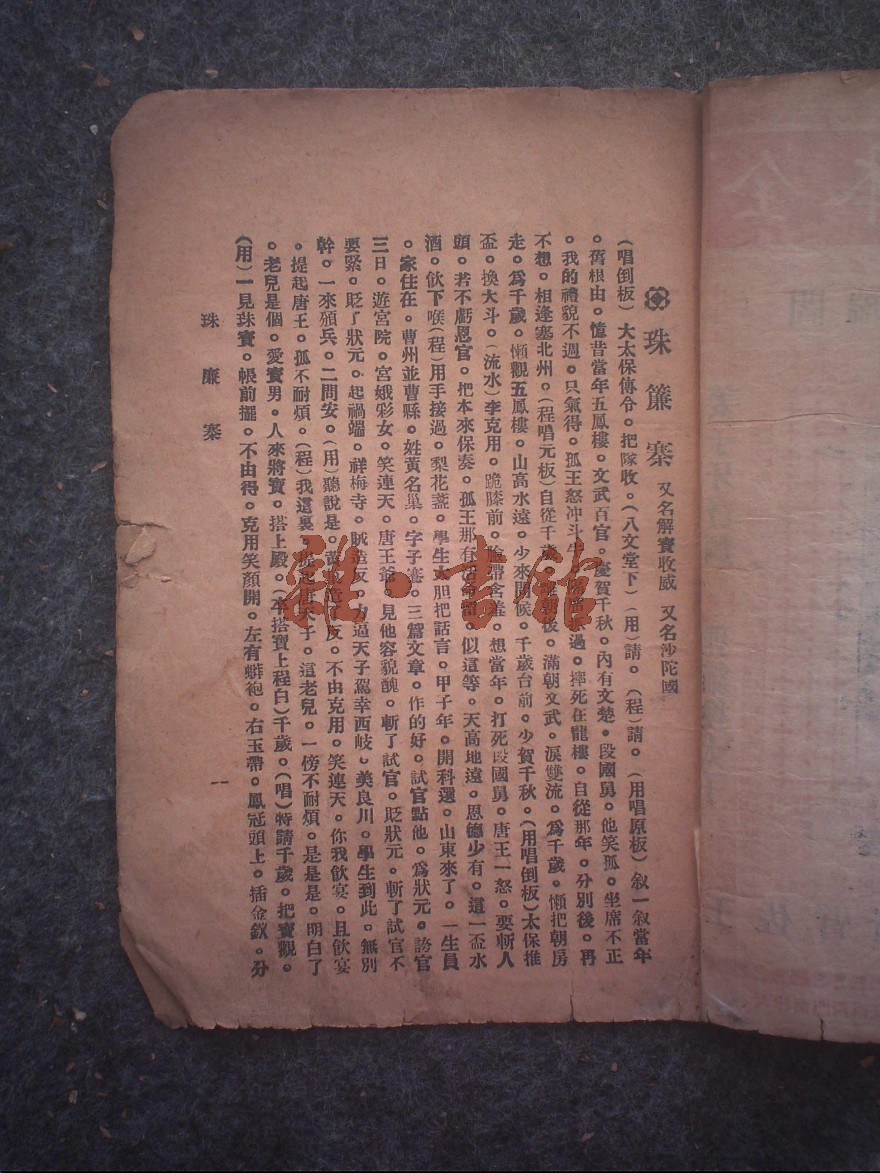 珠簾寨 又名解寶收威 又名沙陀國
(唱倒板)大太保傳令。把隊收。(八文堂下)(用)請。(程)請。(用唱原板)敘一敘當年
。舊根由。憶昔當年五鳳樓。文武百官。慶賀千秋。內有文楚。段國舅。他笑孤。坐席不正
。我的禮貌不週。只氣得。孤王怒冲斗牛。過。摔死在龍樓。自從那年。分別後。再
不想。相逢塞北州。(程唱元板)自從千歲。朝板。滿朝文武。淚雙流。為千歲。懶把朝房
走。為千歲。懶觀五鳳樓。山高水遠。少來問候。千歲台前。少賀千秋。(用唱倒板)太保推
盃。換大斗。(流水)李克用。跪膝前。帶含羞。想當年。打死段國舅。唐王一怒。要斬人
頭。若不虧恩官。把本來保奏。孤王那有活命留。似這等。天高地遠。恩德少有。這一盃水
酒。飲下喉(程)用手接過。梨花盞。學生大胆把話言。甲子年。開科選。山東來了。一生員
。家住在。曹州並曹縣。姓黃名巢。字子。三篇文章。作的好。試官點他。為狀元。誇官
三日。遊宮院。宮娥彩女。笑連天。唐王爺。見他容貌醜。斬了試官。貶狀元。斬了試官不
要緊。貶了狀元。起禍端。祥梅寺。賊造反。力逼天子駕幸西岐。美良川。學生到此。無別
幹。一來頒兵。二問安。(用)聽說是。反。不由克用。笑連天。你我飲宴。且飲宴
。提起唐王。孤不耐煩。(程)我這裏。提起唐天子。這老兒。一傍不耐煩。是是是。明白了
。老兒是個。愛寶男。人來將寶。搭上殿。(本搭寶上程白)千歲。(唱)特請千歲。把寶觀。
(用)一見珠寶。帳前擺。不由得。克用笑顏開。左有蟒袍。右玉帶。鳳冠頭上。插金釵。分
珠廉寨
一
雅·書館
全